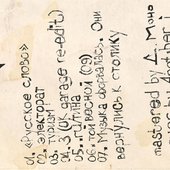 01. «Русское слово»
02. электорат
03. турист!
06. 3 (UK garage re-edit)
05. rutmina
06. той весной (09)
07. Музыка оборвалась. Они
вернулись к столику
mastered by Д. Моно